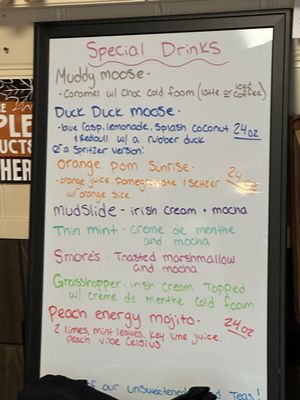 Special Drinks
Muddy moose-
- Caramel w/ choc cold foam (latte or iced coffee)
Duck Duck moose-
- blue rasp, lemonade, splash coconut 24oz
+ Redbull w/ a rubber duck
or a Spritzer version!
Orange Pom Sunrise- 24
- orange juice, pomegranate + seltzer
w/ orange slice
Mudslide- irish cream + mocha
Thin mint- creme de menthe
and mocha
Smores- Toasted marshmallow
and mocha
Grasshopper- Irish cream Topped
w/ creme de menthe cold foam
Peach energy mojito- 24oz
2 limes, mint leaves, key lime juice,
Peach vibe Celsius
of our unsweetened Teas!
PLE
DUCTS
HER